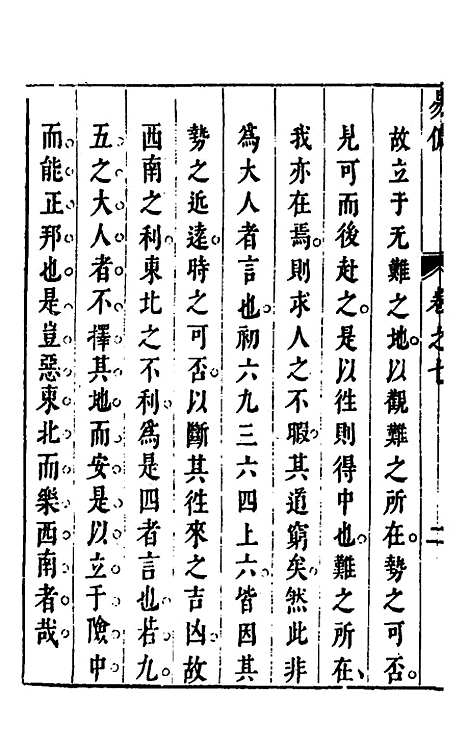 卷之七
二
故立于无難之地。以觀難之所在。勢之可否。
見可而後赴之。是以徃則得中也。難之所在、
我亦在焉。則求人之不暇。其道窮矣。然此非
爲大人者言也。初六九三六四上六。皆因其
勢之近逺。時之可否。以斷其徃來之吉凶。故
西南之利。東北之不利。爲是四者言也。若九。
五之大人者。不擇其地而安。是以立于險中。
而能正邦也。是豈惡東北而樂西南者哉